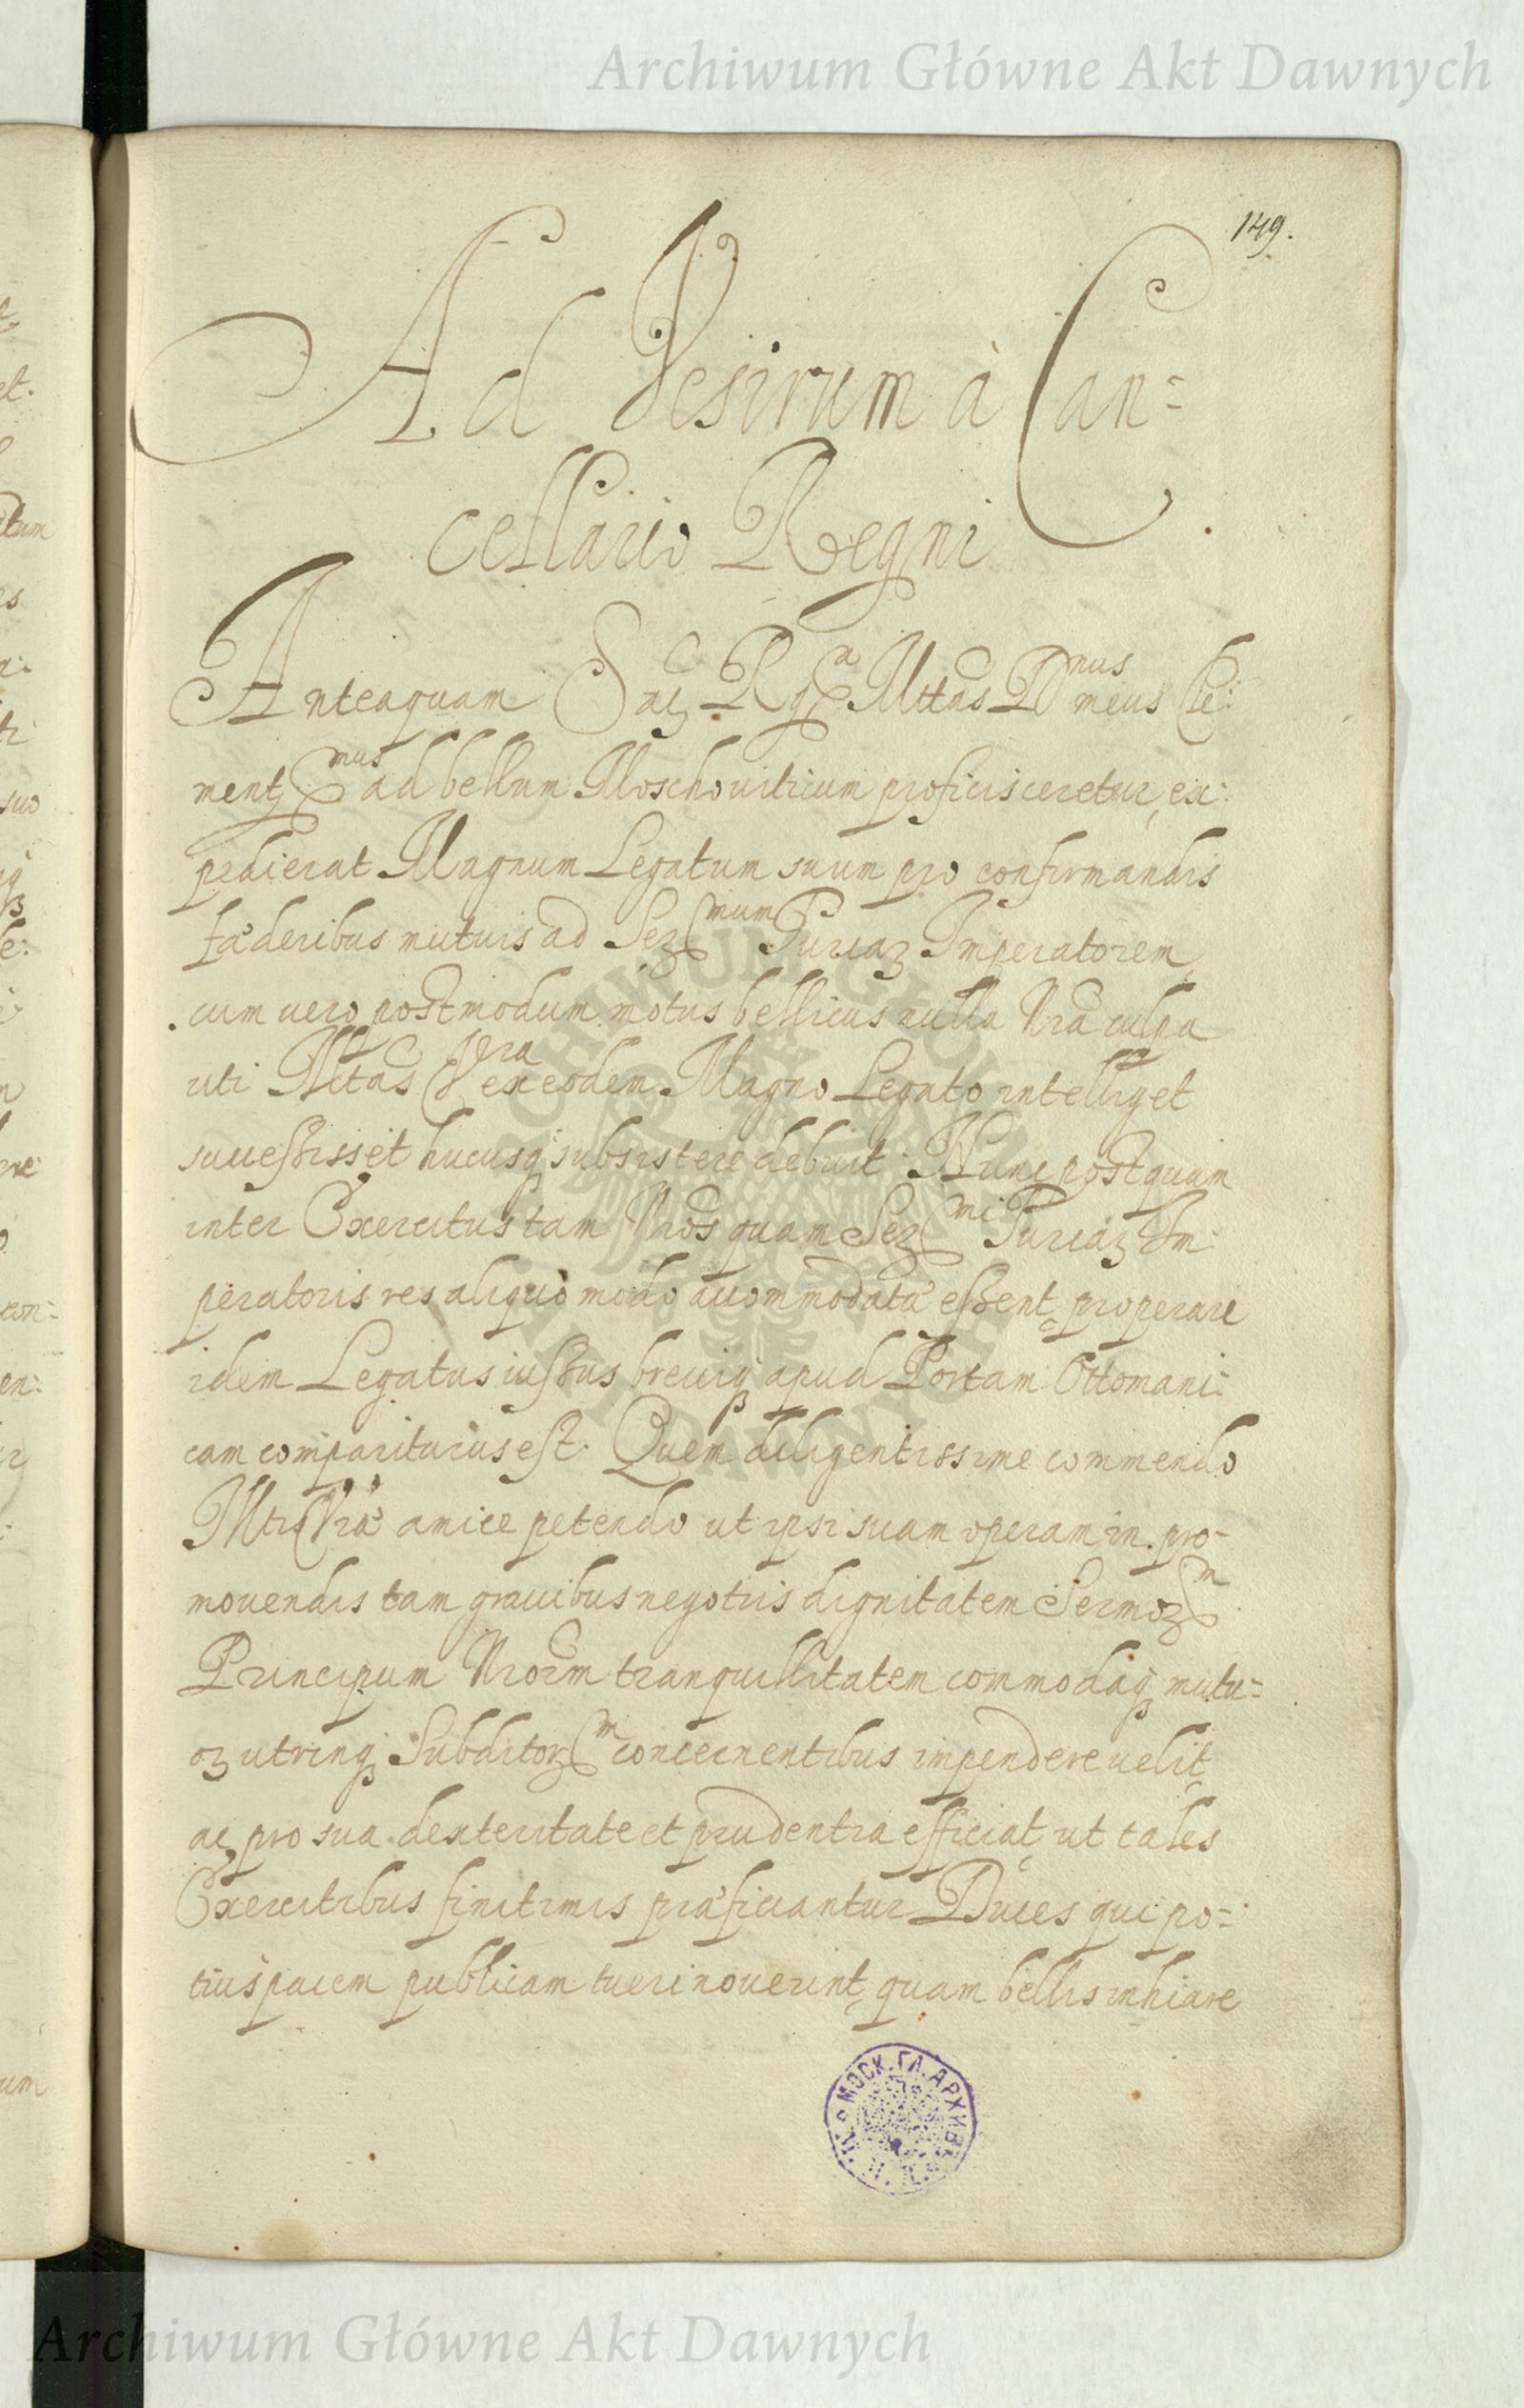 Archiwum Główne Akt Dawnych
149.
Ad Vesirum à Can=
cellario Regni
Anteaquam Sac Rgᵃ Mttas Dⁿᵘˢ meus Cle:
mentᵐᵘˢ ad bellum Moschoviticum proficisceretur, ex:
pedierat Magnum Legatum suum pro confirmandis
fæderibus mutuis ad Serᵐᵘᵐ Turcaz Imperatorem,
cum vero postmodum motus bellicus nulla Nra culpa
uti Mttas Vra ex eodem Magno Legato intelliget
successisset hucusq subsistere debuit. Nunc postquam
inter Exercitus tam Nros quam Serᵐⁱ Turcaz Im:
peratoris res aliquo modo accommodatæ essent, properare
idem Legatus iussus breviq apud Portam Ottomani:
cam compariturus est. Quem diligentissime commendo
Mtis Vræ amice petendo ut ipsi suam operam in pro=
movendis tam gravibus negotiis dignitatem Sermozᵐ
Principum Nrorm tranquillitatem commodaq mutu=
oz utrinq Subditozᵐ concernentibus impendere velit,
ac pro sua dexteritate et prudentia efficiat, ut tales
Exercitibus finitimis præficiantur Duces qui po=
tius pacem publicam tueri noverint, quam bellis inhiare
МОСК. ГЛ. АРХИВЪ
Archiwum Główne Akt Dawnych